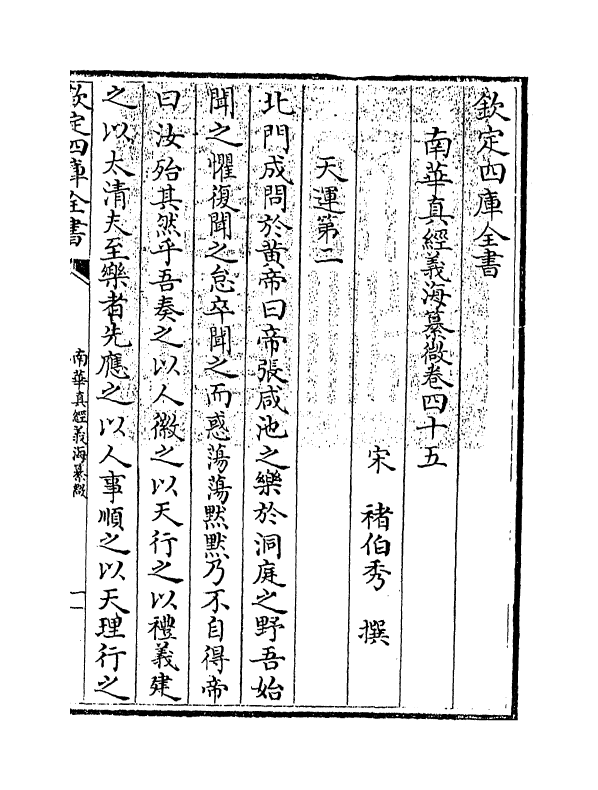 欽定四庫全書
南華真經義海纂微卷四十五
宋 褚伯秀 撰
天運第二
北門成問於黃帝曰帝張咸池之樂於洞庭之野吾始
聞之懼復聞之怠卒聞之而惑蕩蕩默默乃不自得帝
曰汝殆其然乎吾奏之以人徽之以天行之以禮義建
之以太清夫至樂者先應之以人事順之以天理行之
欽定四庫全書
南華真經義海纂微
一